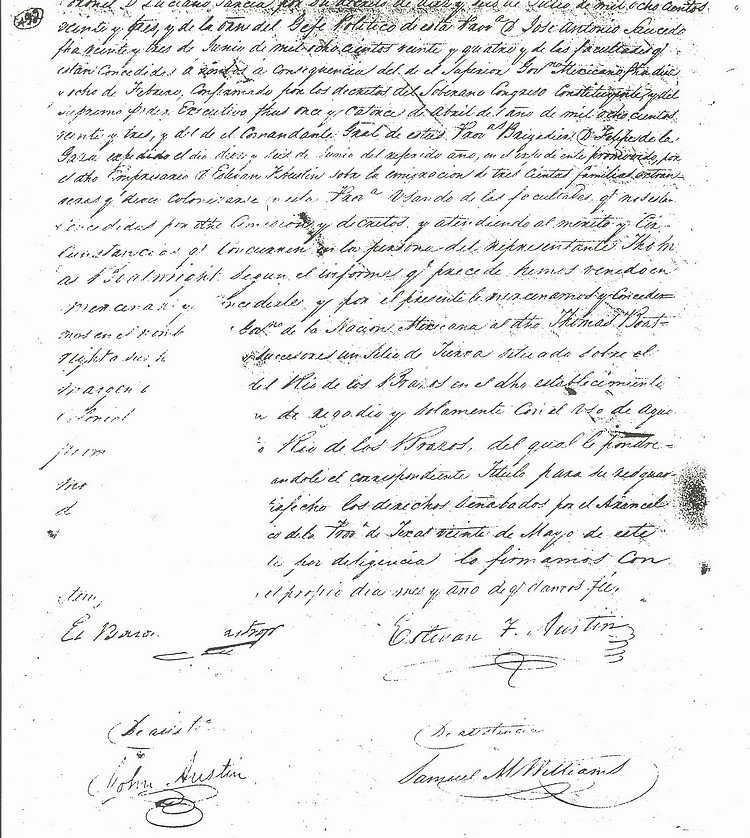 Coronel D Luciano Garcia por su decreto de diez y seis de Julio de mil ocho cientos
veinte y tres, y de la orn del Gefe Politico de esta Prova D Jose Antonio Saucedo
fha veinte y tres de Junio de mil ocho cientos veinte y quatro y de las facultades q
estan Concedidas a consequencia del de el Superior Govno Mexicano fha diez
y ocho de Febrero, Confirmado por los decretos del Soberano Congreso Constituyente, y del
Supremo Poder Executivo fhas once y catorce de Abril del año de mil ocho cientos
veinte y tres, y del de el Comandante Gral de estas Provas Brigadier D Felipe de la
Garza expedido el dia diez y seis de Junio del referido año, en el expediente promovido, por
el dho Empresario D Estevan F Austin sobre la emigracion de tres cientas familias extran
geras q colonizarse en esta Prova Usando de las facultades, q nos estan
concedidas por dha Comision, y decretos, y atendiendo al merito y Cir
cunstancias q concurren en la persona del representante Thom
as Boatwright segun el informe q precede hemos venido en
mercenar y oncederle y por el presente le mercenamos y Concede=
mos en el nomb Govno de la Nacion Mexicana al dho Thomas Boat=
right a su h sucesores un Sitio de Tierra situado sobre el
margen del Rio de los Brazos en el dho establecimiento
Colonial de regadio y solamente Con el Uso de Agua
Rio de los Brazos, del qual le pondre=
mo andole el correspondiente Titulo para su resguar
d isfecho los derechos señalados por el Arancel
co de la Prova de Texas veinte de Mayo de este
por diligencia lo firmamos Con
el propio dia mes y año de q damos fé.
El Baron astrop
Estevan F. Austin
De asista
De asistencia
John Austin
Samuel M Williams